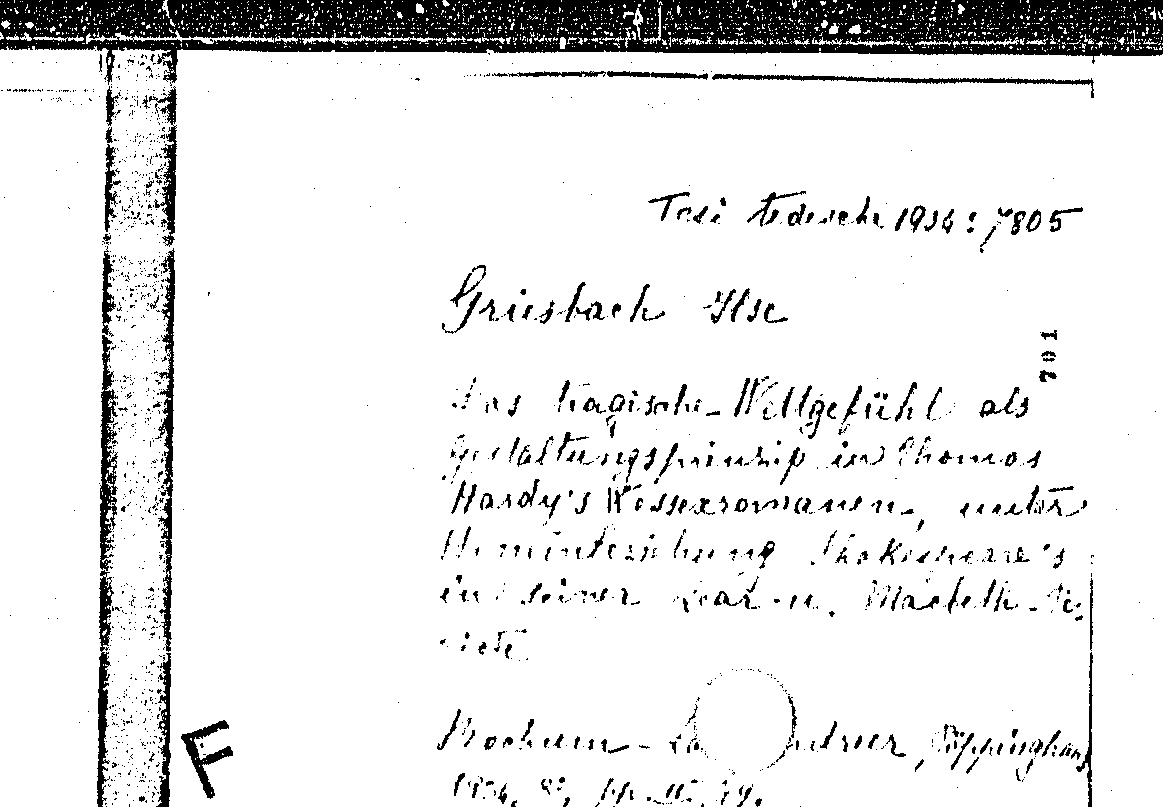 Tesi tedesche 1934: 7805
Griesbach Ilse
701
Das tragische Weltgefühl als
Gestaltungsprinzip in Thomas
Hardy's Wessexromanen, unter
Hineinbeziehung Shakespeare's
in seiner Lear- u. Macbeth-
Bochum - Pöppinghaus
1934. 8°,
F